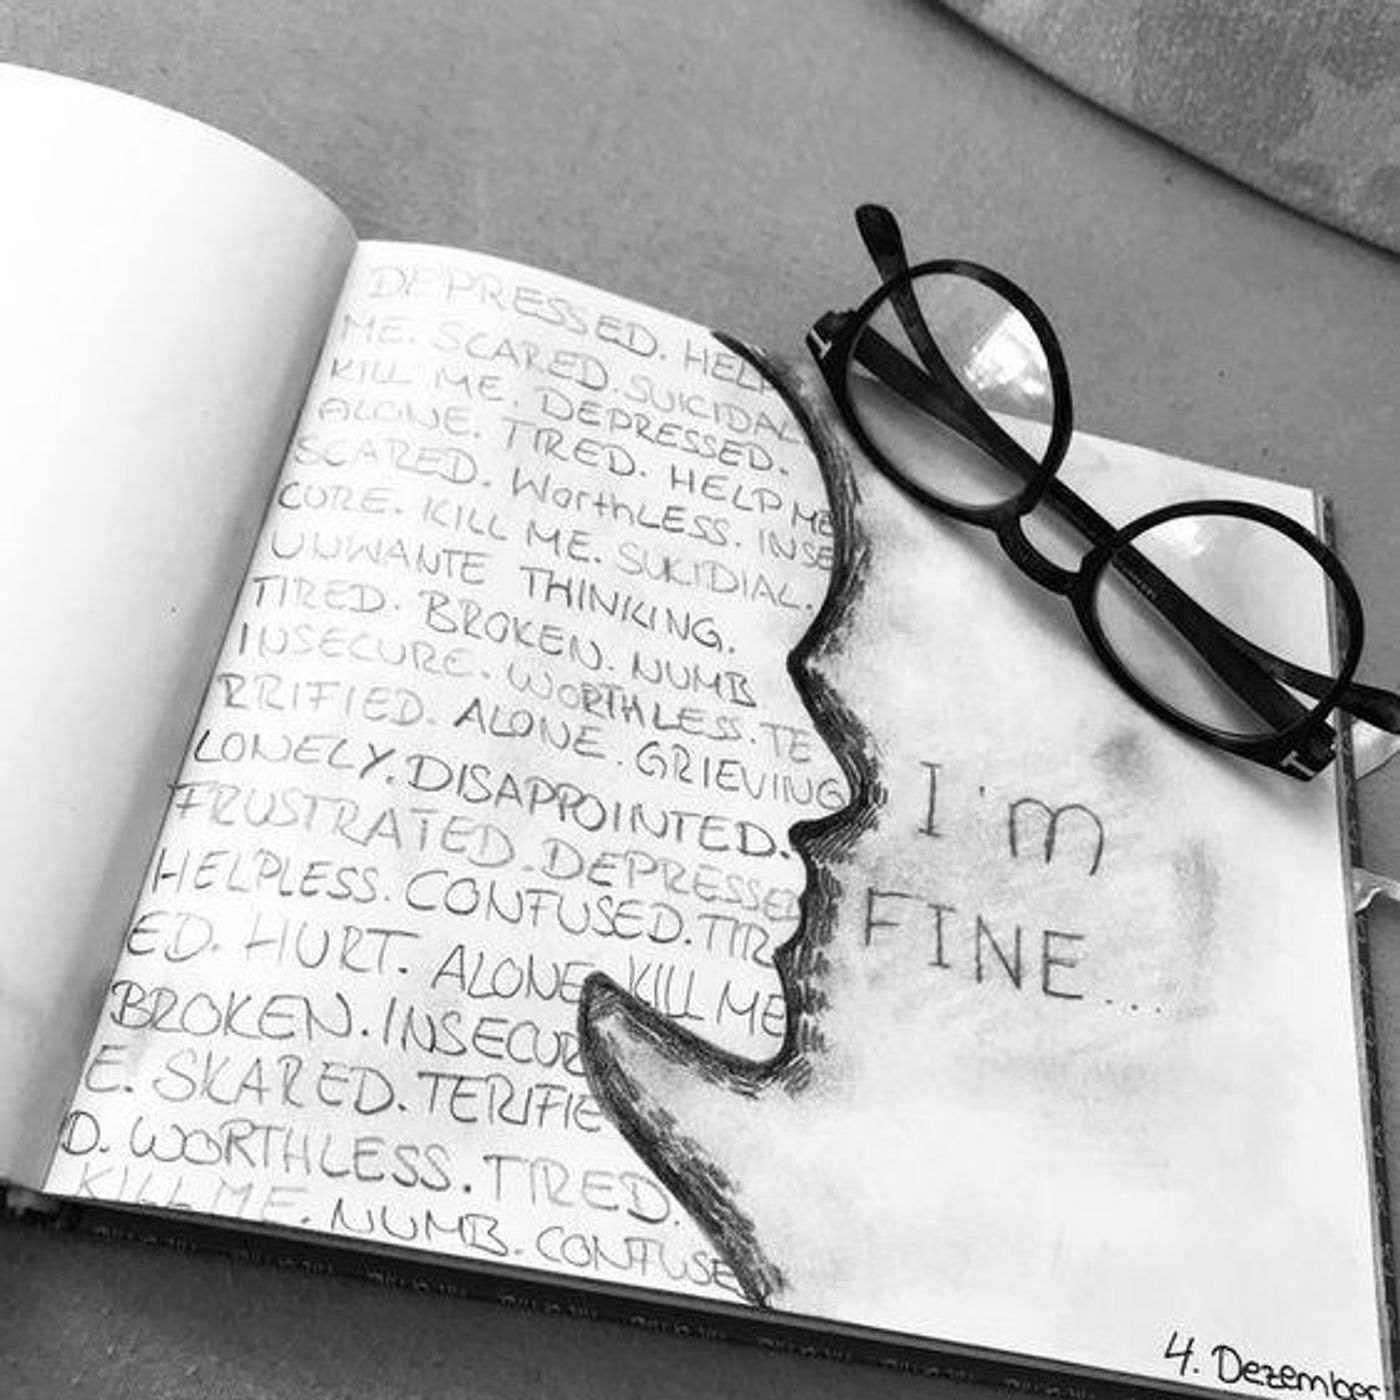 DEPRESSED. HELP
ME. SCARED. SUICIDAL.
KILL ME. DEPRESSED.
ALONE. TIRED. HELP ME
SCARED. WorthLESS. INSE
CURE. KILL ME. SUICIDIAL.
UNWANTE THINKING.
TIRED. BROKEN. NUMB
INSECURE. WORTHLESS. TE
RRIFIED. ALONE. GRIEVING
LONELY. DISAPPOINTED.
FRUSTRATED. DEPRESSED
HELPLESS. CONFUSED. TIR
ED. HURT. ALONE. KILL ME
BROKEN. INSECUR
E. SKARED. TERIFIE
D. WORTHLESS. TIRED.
KILL ME. NUMB. CONFUSE
I'm
FINE....
4. Dezember